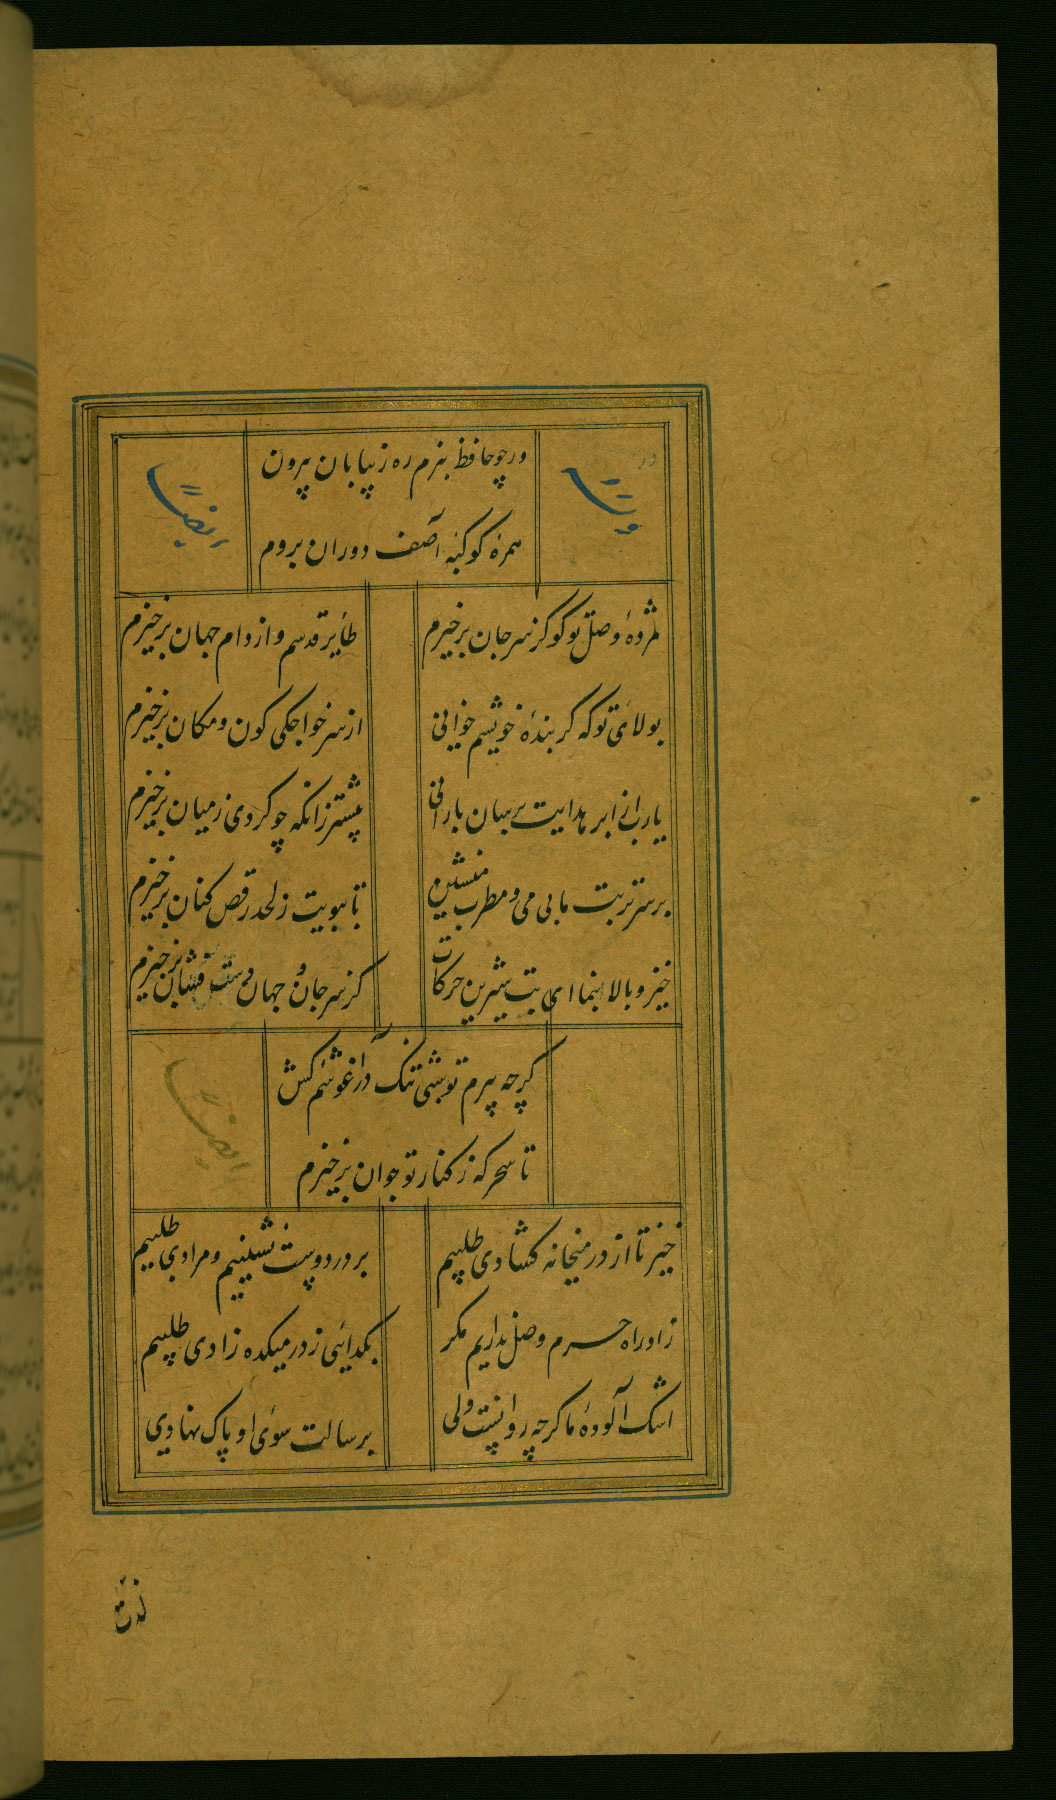 ورچو حافظ نبرم ره ز بیابان بیرون
وله ایضا
همره کوکبه آصف دوران بروم
مژدهٔ وصل تو کو کز سر جان برخیزم طایر قدسم و از دام جهان برخیزم
بولای تو که گر بندهٔ خویشم خوانی از سر خواجکی کون و مکان برخیزم
یارب از ابر هدایت برسان بارانی پیشتر زانکه چو کردی ز میان برخیزم
بر سر تربت ما بی می و مطرب منشین تا ببویت ز لحد رقص کنان برخیزم
خیز و بالا بنما ای بت شیرین حرکات کز سر جان و جهان دست فشان برخیزم
کرچه پیرم تو شبی تنک در آغوشم کش
ایضا
تا سحرکه ز کنار تو جوان برخیزم
خیز تا از در میخانه کشادی طلبیم بر در دوست نشینیم و مرادی طلبیم
زاد راه حرم وصل نداریم مکر بکدایی ز در میکده زادی طلبیم
اشک آلودهٔ ما کرچه روانست ولی برسالت سوی او پاک نهادی
لذت